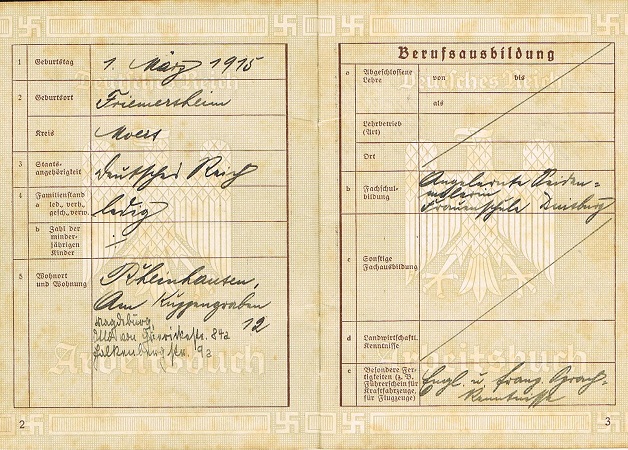 1 Geburtstag 1. März 1915
2 Geburtsort Friemersheim
Kreis Moers
3 Staats-
angehörigkeit Deutsches Reich
4 Familienstand
a led., verh.,
gesch., verw. ledig
b Zahl der
minder-
jährigen
Kinder
5 Wohnort
und Wohnung Rheinhausen,
Am Kuppengraben
12
Magdeburg,
Otto von Guerickestr. 84a
Falkenbergstr. 9a
Arbeitsbuch
2
Berufsausbildung
a Abgeschlossene
Lehre von bis
als
Lehrbetrieb
(Art)
Ort
b Fachschul-
bildung Angelernte Seiden-
malerin
Frauenschule Duisburg
c Sonstige
Fachausbildung
d Landwirtschaftl.
Kenntnisse
e Besondere Fer-
tigkeiten (z. B.
Führerschein für
Kraftfahrzeuge,
für Flugzeuge) Engl. u. franz. Sprach-
kenntnisse
Deutsches Reich
Arbeitsbuch
3